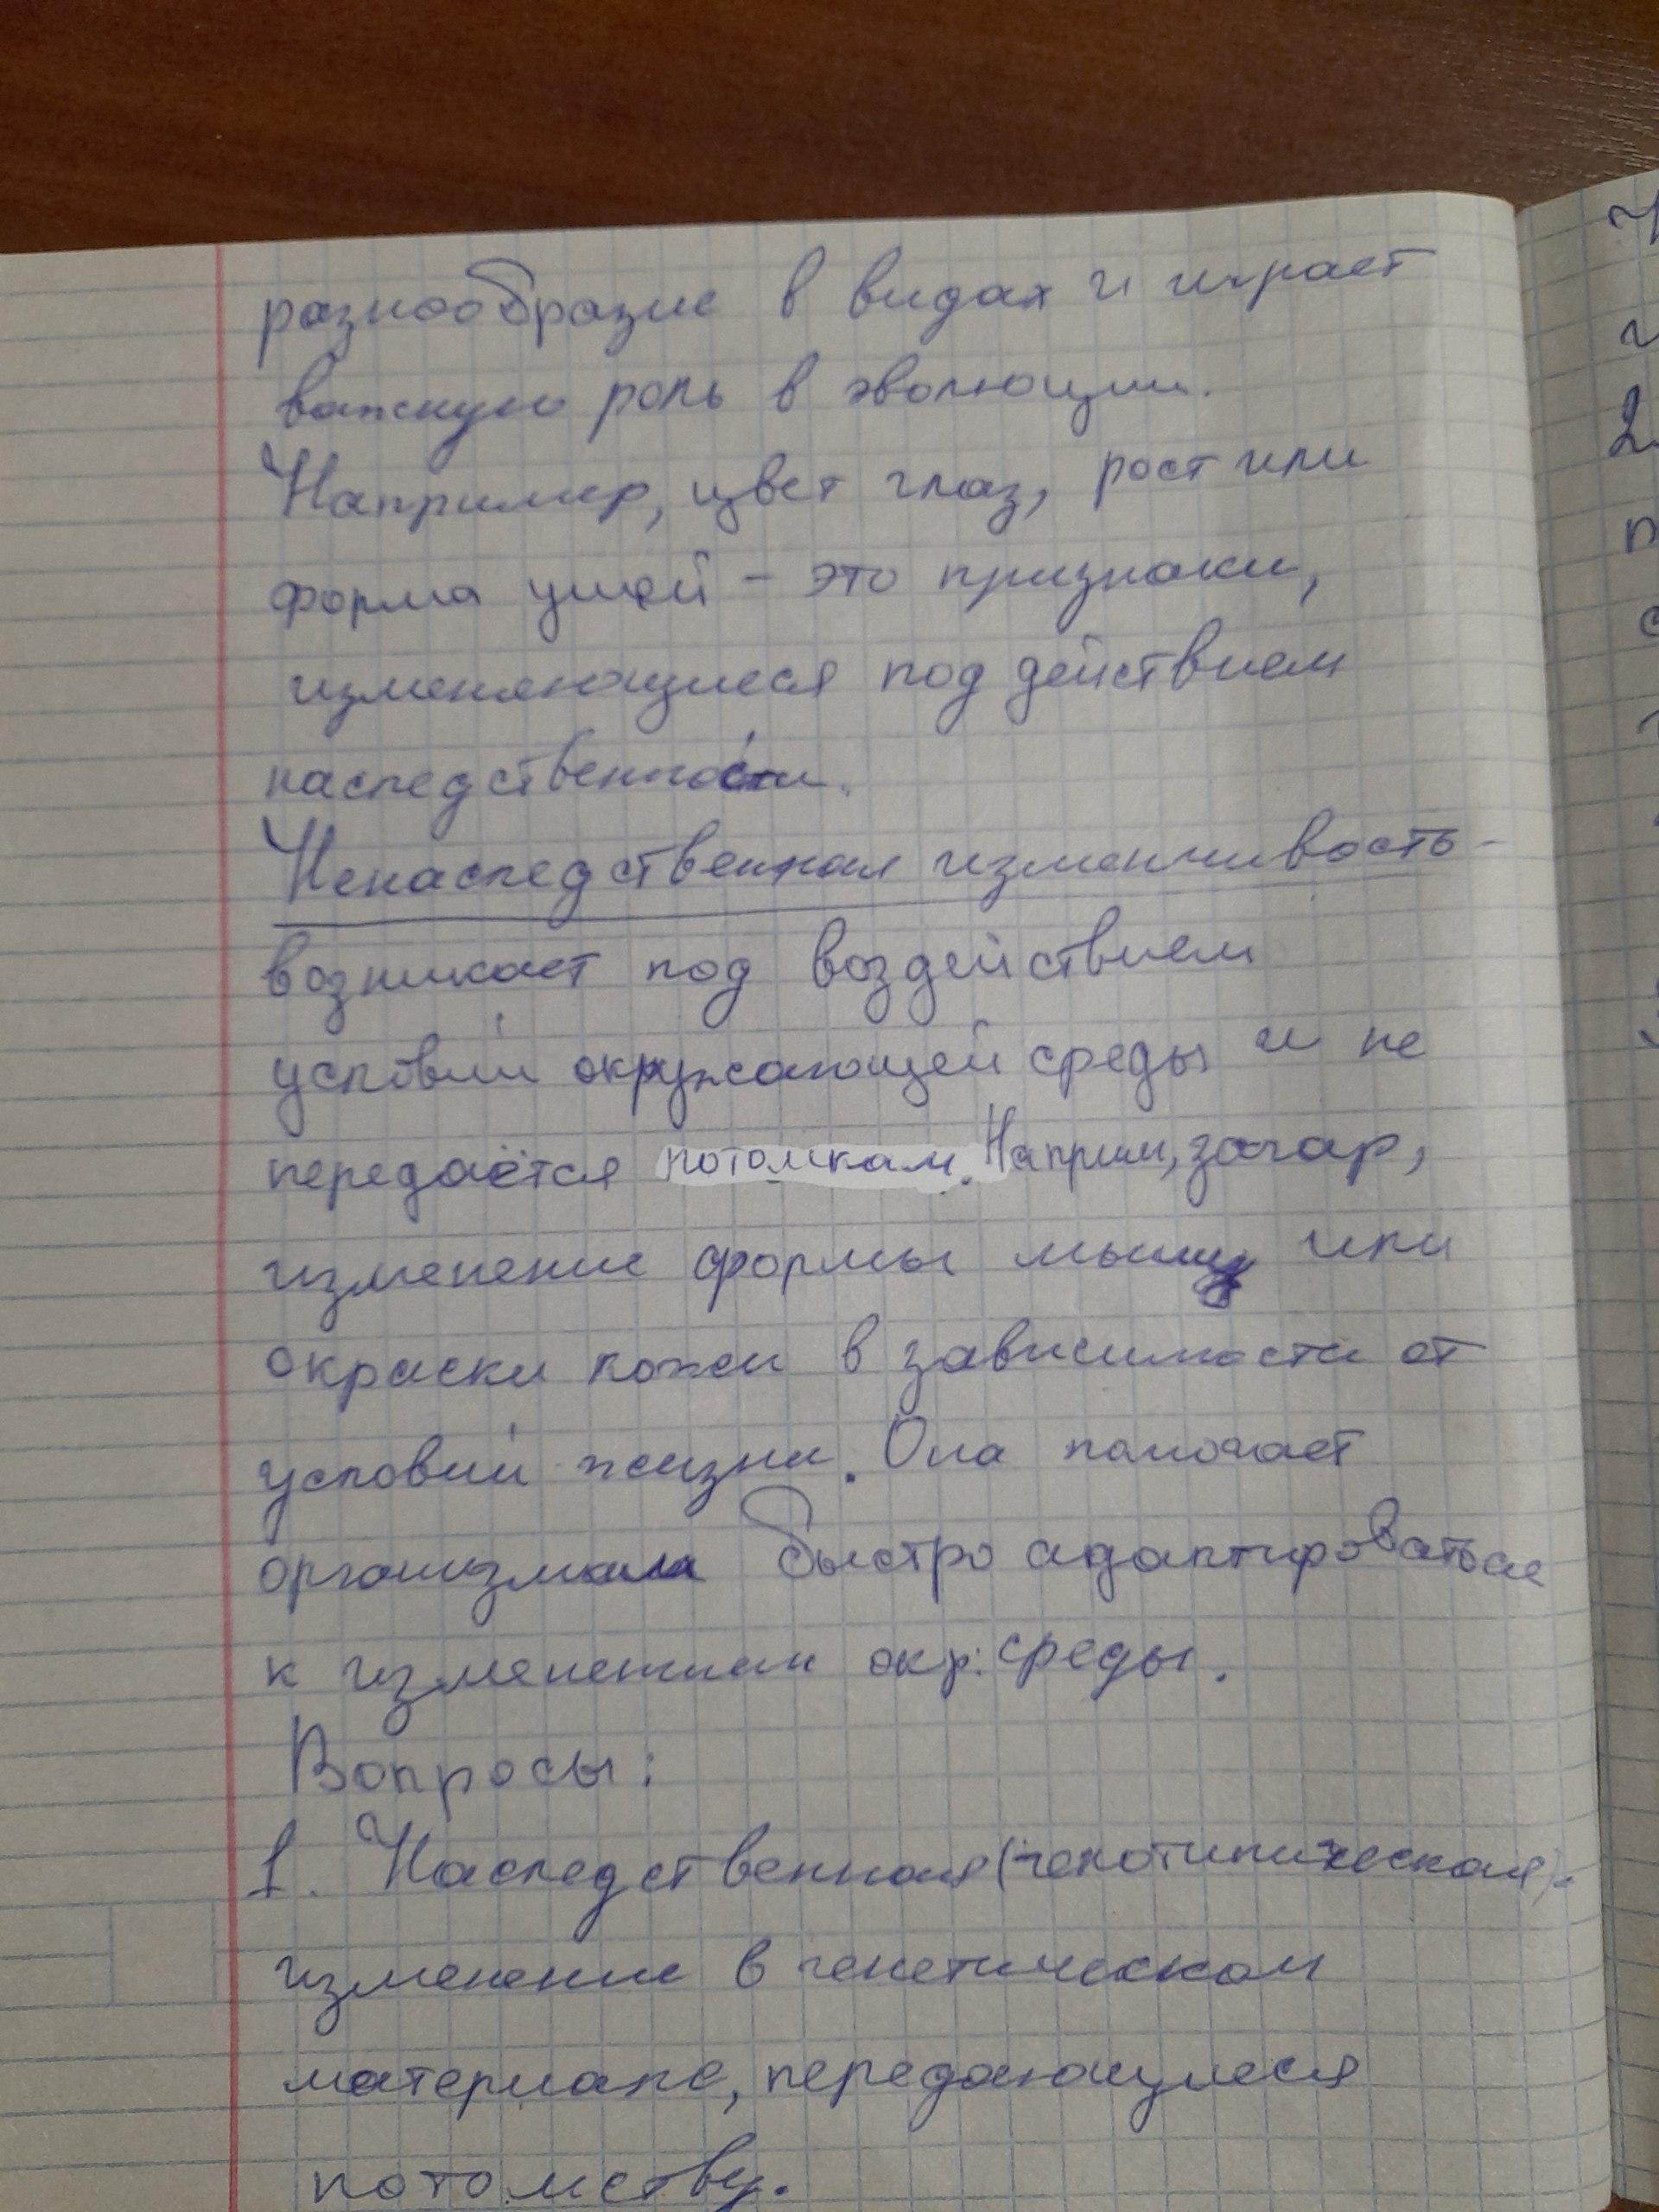 разнообразие в видах и играет
важную роль в эволюции.
Например, цвет глаз, рост или
форма ушей - это признаки,
изменяющиеся под действием
наследственности.
Ненаследственная изменчивость -
возникает под воздействием
условий окружающей среды и не
передаётся потомкам. Наприм, загар,
изменение формы мышц или
окраски кожи в зависимости от
условий жизни. Она помогает
организмам быстро адаптироваться
к изменениям окр. среды.
Вопросы:
1. Наследственная (генотипическая)-
изменение в генетическом
материале, передающиеся
потомству.